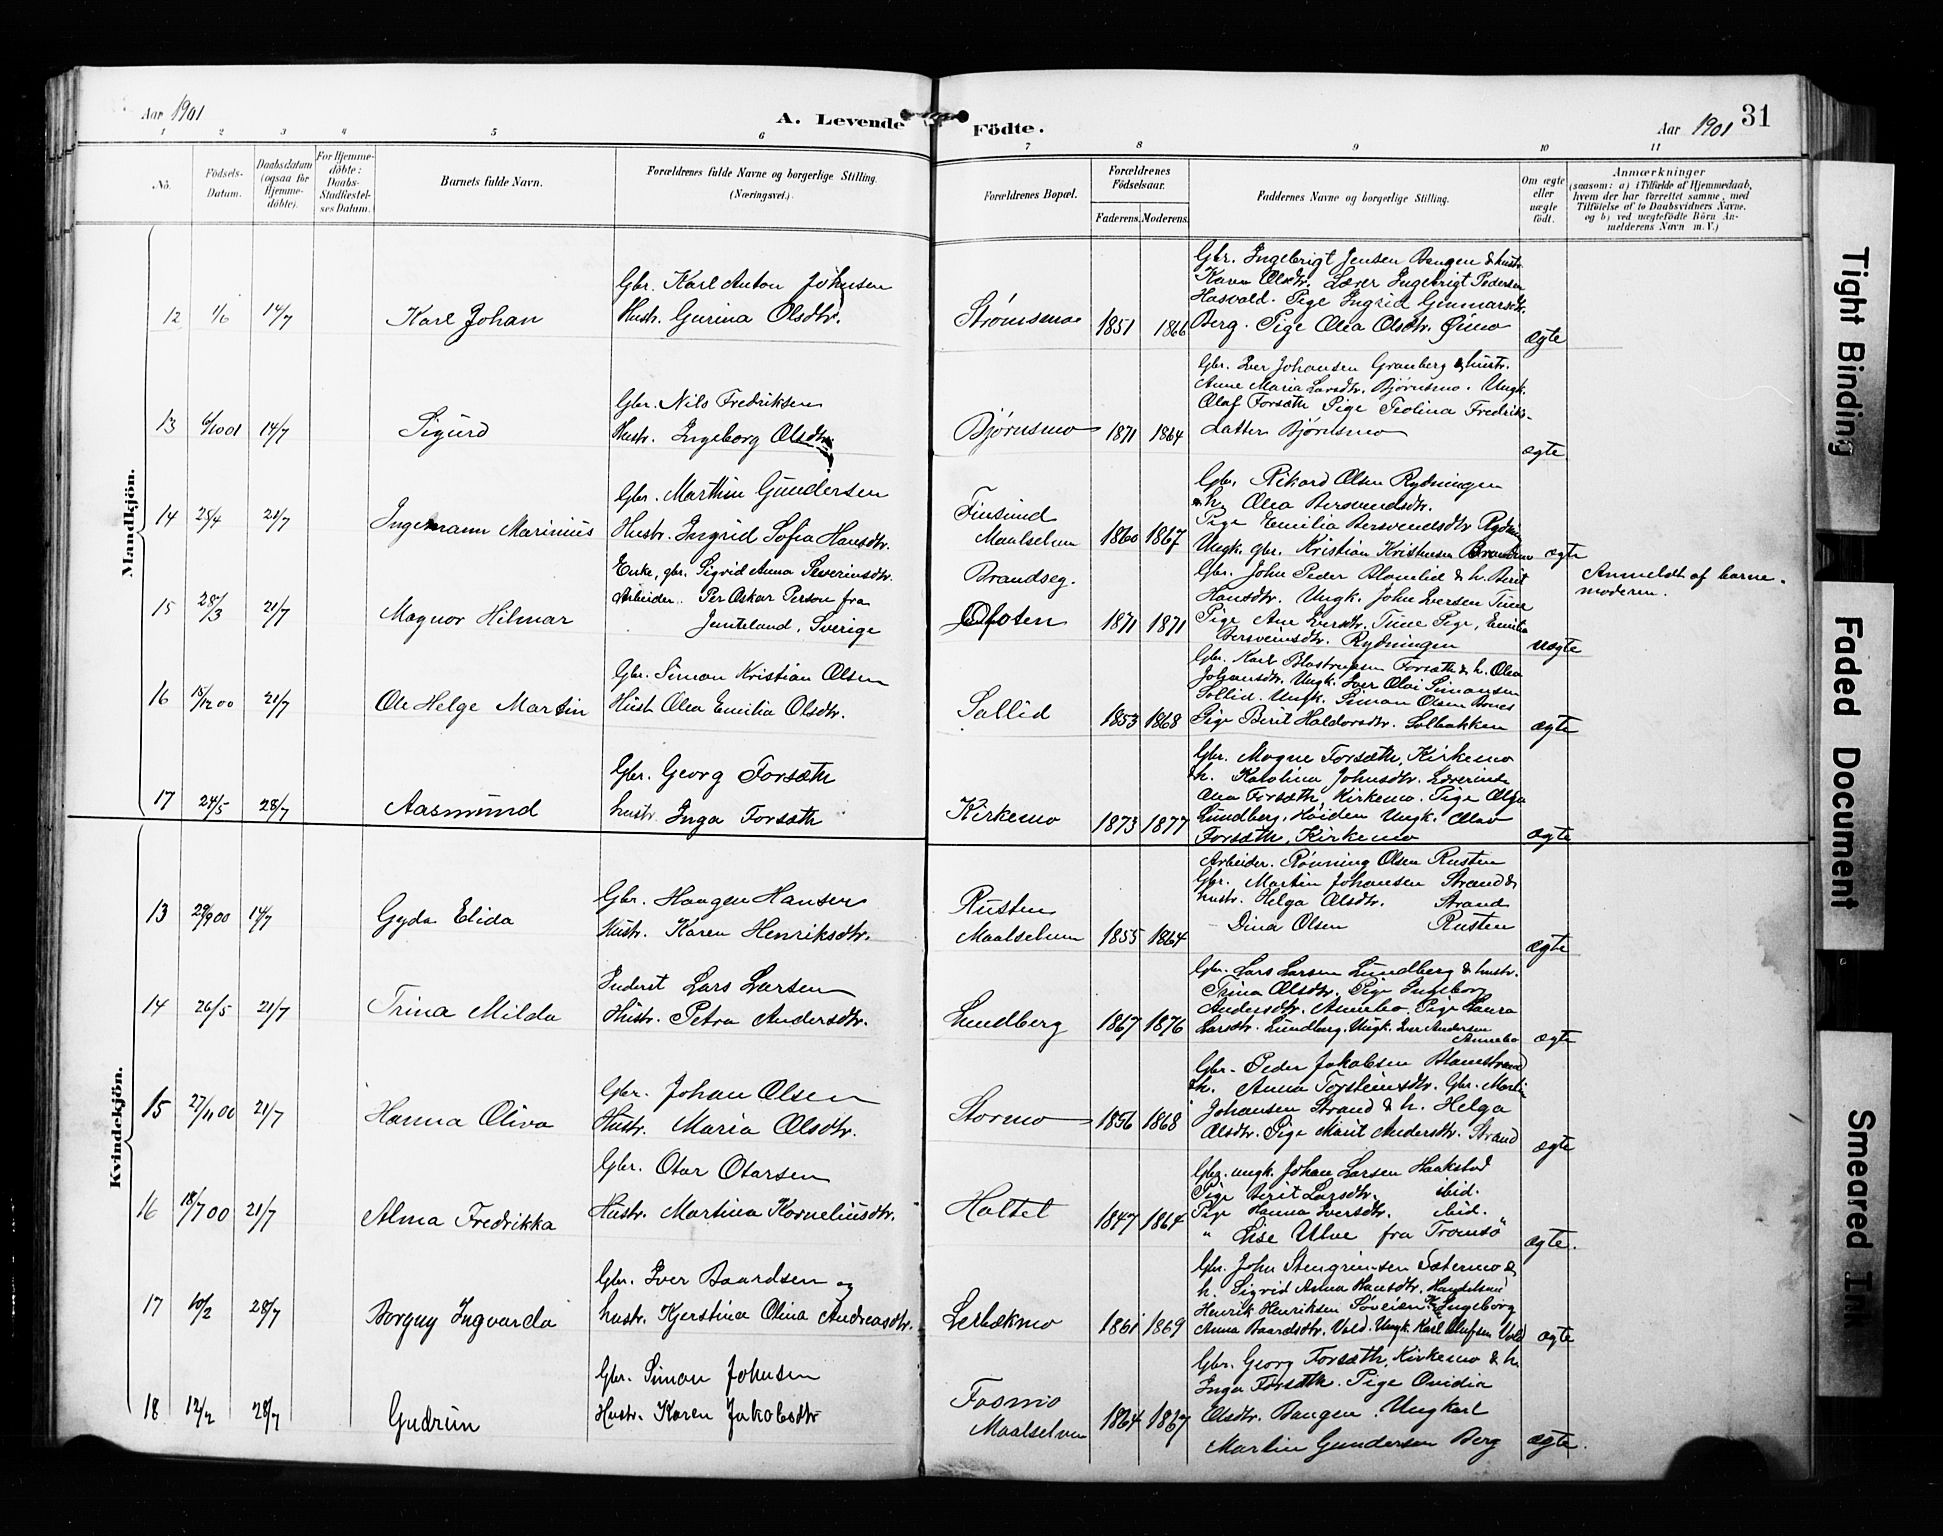 Aar 1901
A. Levende Födte.
Aar 1901
31
1 2 3 4 5 6 7 8 9 10 11
No.
Födsels-Datum.
Daabsdatum (ogsaa for Hjemme-döbte).
For Hjemme-döbte: Daabs-Stadfæstel-ses Datum.
Barnets fulde Navn.
Forældrenes fulde Navne og borgerlige Stilling.
(Næringsvei.)
Forældrenes Bopæl.
Forældrenes Födselsaar.
Faderens. Moderens.
Faddernes Navne og borgerlige Stilling.
Om ægte eller uægte födt.
Anmærkninger
(saasom: a) i Tilfælde af Hjemmedaab,
hvem der har forrettet samme, med
Tilföielse af to Daabsvidners Navne.
og b) ved uægtefödte Börn An-
melderens Navn m. V.)
Mandkjön.
12 1/6 14/7 Karl Johan
Gbr. Karl Anton Johnsen
Hustr. Gurina Olsdtr.
Strømsmo 1851 1866
Gbr. Ingebrigt Jensen Bangen & hustr.
Karen Olsdtr. Lærer Ingebrigt Pedersen
Hasvold. Pige Ingrid Gunnarsdtr.
Berg. Pige Olea Olsdtr. Øimo
ægte
13 6/10 01 14/7 Sigurd
Gbr. Nils Fredriksen
Hustr. Ingeborg Olsdtr.
Bjørnsmo 1871 1864
Gbr. Iver Johansen Granberg & hustr.
Anne Maria Larsdtr. Bjørnsmo. Ungk.
Olaf Forsæth Pige Teolina Fredriks-
datter Bjørnsmo
ægte
14 25/4 21/7 Ingemann Marinius
Gbr. Marthin Gundersen
Hustr. Ingrid Sofia Hansdtr.
Finsund
Maalselven 1860 1867
Gbr. Rikard Olsen Rydningen
& h. Olea Bersvendsdtr.
Pige Emilia Bersvendsdtr Rydn
Ungk. gbr. Kristian Kristensen
ægte
15 28/3 21/7 Magnor Hilmar
Enke, gbr. Sigrid Anna Severinsdtr.
Arbeider. Per Oskar Person fra
Jemteland, Sverige
Brandseg.
Ofoten 1871 1871
Gbr. John Peder Blomlid & h. Berit
Hansdtr. Ungk. John Iversen Tune
Pige Ane Iversdtr. Tune Pige, Emilia
Bersveinsdtr. Rydningen
uægte
Anmeldt af barne-
moderen.
16 15/12 00 21/7 Ole Helge Martin
Gbr. Simon Kristian Olsen
Hustr Olea Emilia Olsdtr.
Sollid 1853 1868
Gbr. Karl Forsæth & h. Olea
Johansdtr. Ungk. Iver Olai Simonsen
Sollid. Ungk. Simon Olsen
Pige Berit Haldorsdtr. Solbakken
ægte
17 24/5 28/7 Aasmund
Gbr. Georg Forsæth
hustr. Inga Forsæth
Kirkemo 1873 1877
Gbr. Mogne Forsæth, Kirkemo
& h. Karolina Johnsdtr. Lærerinde
Olea Forsæth, Kirkemo. Pige Olga
Lundberg, Høiden Ungk. Olav
Forsæth, Kirkemo
ægte
Kvindekjön.
13 29/9 00 14/7 Gyda Elida
Gbr. Haagen Hansen
Hustr. Karen Henriksdtr.
Rusten
Maalselven 1855 1864
Arbeider. Rønning Olsen Rusten
Gbr. Martin Johansen Strand &
hustr. Helga Olsdtr. Strand
Dina Olsen Rusten
ægte
14 26/5 21/7 Trina Milda
Inderst Lars Larsen
Hustr. Petra Andersdtr.
Lundberg 1867 1876
Gbr. Lars Larsen Lundberg & hustr.
Trina Olsdtr. Pige Ingeborg
Andersdtr. Annebo. Pige Laura
Larsdtr. Lundberg. Ungk. Iver Andersen
Annebo
ægte
15 27/11 00 21/7 Hanna Oliva
Gbr. Johan Olsen
Hustr. Maria Olsdtr.
Stormo 1856 1868
Gbr. Peder Jakobsen
& h. Anna Torsteinsdtr. Gbr. Martin
Johansen Strand & h. Helga
Olsdtr. Pige Marit Andersdtr. Strand
ægte
16 18/7 00 21/7 Alma Fredrikka
Gbr. Otar Otarsen
Hustr. Martina Korneliusdtr.
Holtet 1847 1864
Gbr. ungk. Johan Larsen Haakstad
Pige Berit Larsdtr. ibid.
Pige Hanna Iversdtr. ibid.
" Lise Ulve fra Tromsö
ægte.
17 10/2 28/7 Borgny Ingvarda
Gbr. Iver Baardsen og
hustr. Kjerstina Olina Andreasdtr.
Lerbækmo 1861 1869
Gbr. John Stengrimsen Sætermo &
h. Sigrid Anna Hansdtr. Handelsm.
Henrik Henriksen Søveien Ingeborg
Anna Baardsdtr. Vold. Ungk. Karl Olufsen Vold
ægte
18 12/2 28/7 Gudrun
Gbr. Simon Johnsen
Hustr. Karen Jakobsdtr
Fosmo
Maalselven 1864 1867
Gbr. Georg Forsæth, Kirkemo & h.
Inga Forsæth. Pige Ovidia
Olsdtr. Bangen. Ungkarl
Martin Gundersen Berg
ægte.
Tight Binding
Faded Document
Smeared Ink